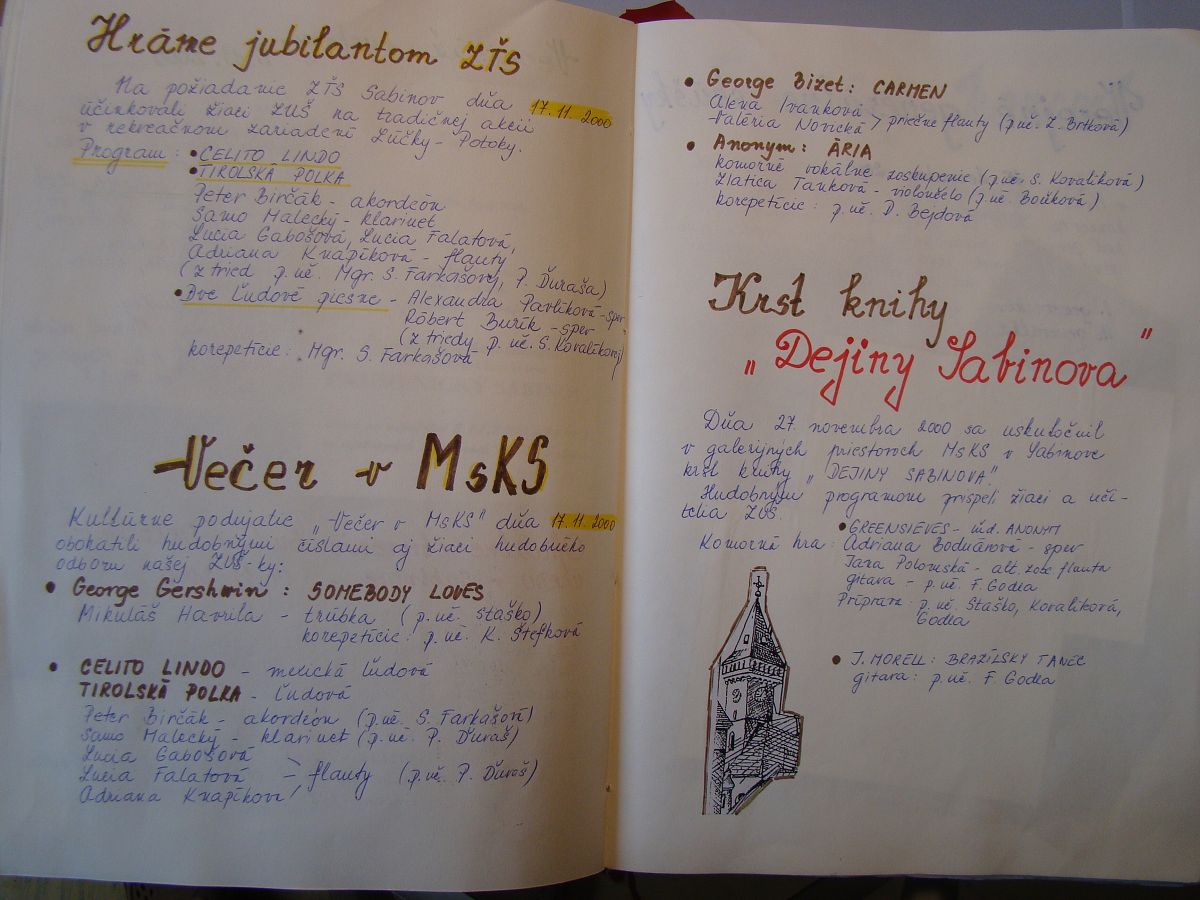 Hráme jubilantom ZŤS
Na požiadanie ZŤS Sabinov dňa 17.11.2000
účinkovali žiaci ZUŠ na tradičnej akcii
v rekreačnom zariadení Lúčky - Potoky.
Program: • CELITO LINDO
• TIROLSKÁ POLKA
Peter Birčák - akordeón
Samo Malecký - klarinet
Lucia Gabošová, Lucia Falatová,
Adriana Knapíková - flauty
(z tried p. uč. Mgr. S. Farkašovej, P. Ďuraša)
• Dve ľudové piesne - Alexandra Pavlíková - spev
Róbert Burík - spev
(z triedy p. uč. S. Kovalíkovej)
korepetície: Mgr. S. Farkašová
Večer v MsKS
Kultúrne podujatie „Večer v MsKS" dňa 17.11.2000
obohatili hudobnými číslami aj žiaci hudobného
odboru našej ZUŠ-ky:
• George Gershwin: SOMEBODY LOVES
Mikuláš Havrila - trúbka (p. uč. Staško)
korepetície: p. uč. K. Štefková
• CELITO LINDO - mexická ľudová
TIROLSKÁ POLKA - ľudová
Peter Birčák - akordeón (p. uč. S. Farkašová)
Samo Malecký - klarinet (p. uč. P. Ďuraš)
Lucia Gabošová
Lucia Falatová - flauty (p. uč. P. Ďuraš)
Adriana Knapíková
• George Bizet: CARMEN
Alena Ivanková
Valéria Novická > priečne flauty (p. uč. Z. Brtková)
• Anonym: ÁRIA
komorné vokálne zoskupenie (p. uč. S. Kovalíková)
Zlatica Tanková - violončelo (p. uč. Boňková)
korepetície: p. uč. D. Bejdová
Krst knihy
„Dejiny Sabinova"
Dňa 27. novembra 2000 sa uskutočnil
v galerijných priestoroch MsKS v Sabinove
krst knihy „DEJINY SABINOVA".
Hudobným programom prispeli žiaci a uči-
telia ZUŠ.
• GREENSIEVES - úd. ANONYM
Komorná hra: Adriana Bodnárová - spev
Jana Polomská - alt. zobc. flauta
gitara - p. uč. F. Godla
Príprava: p. uč. Staško, Kovalíková,
Godla
• J. MORELL: BRAZÍLSKY TANEC
gitara: p. uč. F. Godla